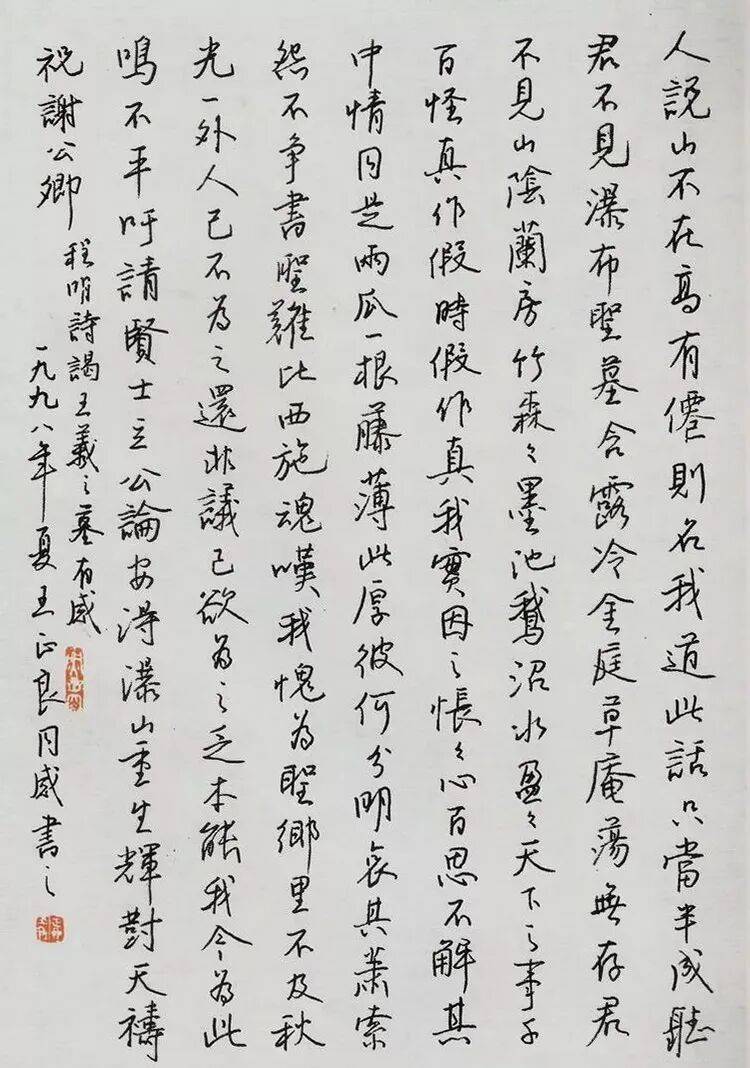 人説山不在高有僊則名我道此話只當半成聽
君不見瀑布聖墓含露冷金庭草庵蕩無存君
不見山陰蘭房竹森々墨池鵝沼水盈々天下之事千
百怪真作假時假作真我實因之悵々心百思不解其
中情同是兩瓜一根藤薄此厚彼何分明哀其蕭索
怨不争書聖難比西施魂嘆我愧為聖鄉里不及秋
光一外人己不為之還非議己欲為之乏本能我今為此
鳴不平吁請賢士立公論安得瀑山重生輝對天禱
祝謝公卿
程明詩謁王羲之墓有感
一九九八年夏王正良同感書之